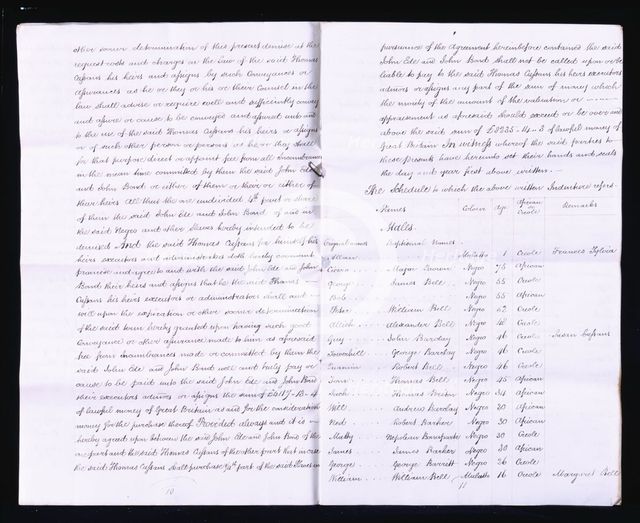 other sooner determination of this present demise at the
request costs and charges in the law of the said Thomas
Cussans his heirs and assigns by such Conveyances or
Assurances as he or they or his or their Counsel in the
law shall advise or require well and sufficiently convey
and assure or cause to be conveyed and assured unto and
to the use of the said Thomas Cussans his heirs or assigns
or of such other person or persons as he or they shall
for that purpose direct or appoint free from all incumbrances
in the mean time committed by them the said John Ede
and John Bond or either of them or their or either of
their heirs all that the one undivided 4th part or share
of them the said John Ede and John Bond of and in
the said Negro and other Slaves hereby intended to be
demised And the said Thomas Cussans for himself his
heirs executors and administrators doth hereby covenant
promise and agree to and with the said John Ede and John
Bond their heirs and assigns that he the said Thomas
Cussans his heirs executors or administrators shall and
will upon the expiration or other sooner determination
of the said term hereby granted upon having such good
Conveyance or other assurance made to him as aforesaid
free from incumbrances made or committed by them the
said John Ede and John Bond well and truly pay or
cause to be paid unto the said John Ede and John Bond
their executors admors or assigns the sum of
of lawful money of Great Britain as and for the consideration
money for the purchase thereof Provided always and it is
hereby agreed upon between the said John Ede and John Bond of the
one part and the said Thomas Cussans of the other part that in case
the said Thomas Cussans shall purchase 4th part of the said Slaves in
10
pursuance of the Agreement hereinbefore contained the said
John Ede and John Bond shall not be called upon or be
liable to pay to the said Thomas Cussans his heirs executors
admors or assigns any part of the sum of money which
the moiety of the amount of the valuation or
appraisement as aforesaid should exceed or be over and
above the said sum of £3235-14-3 of lawful money of
Great Britain In witness whereof the said parties to
these presents have hereunto set their hands and seals
the day and year first above written
The Schedule to which the above written Indenture refers
Names Colour Age African or Creole Remarks
Males
Original names Baptismal Names
William Mulatto 1 Creole Frances Sylvia
Cicero Major Brown Negro 75 African
George James Bell Negro 55 Creole
Bob Negro 55 African
Peter William Bell Negro 52 Creole
Alexander Bell Negro 48 Creole
Guy John Barclay Negro 46 Creole Susan Cussans
George Barclay Negro 46 Creole
Robert Bell Negro 46 Creole
Tom Thomas Bell Negro 45 African
Thomas Negro 34 African
Will Andrew Barclay Negro 30 African
Ned Robert Barker Negro 30 African
Napolian Bonaparte Negro 30 Creole
James James Barker Negro 30 African
George George Barrett Negro 26 Creole
William William Bell Mulatto 16 Creole Margaret Bell
11